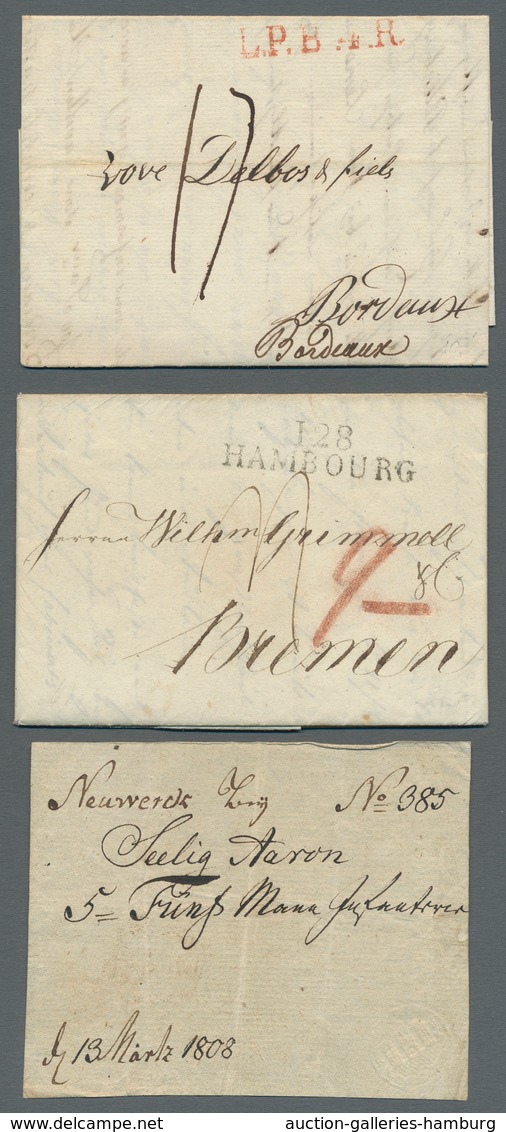 L.P.B.4.R.
17
vove Delbos & fiels
Bordaux
Bordeaux
128
HAMBOURG
Herrn Wilhm Grimmell
& C
Bremen
Neuwerck Bey No 385
Seelig Aaron
5= Fünf Mann Infanterie
d 13 Märtz 1808
www.delcampe.net
auction-galleries-hamburg